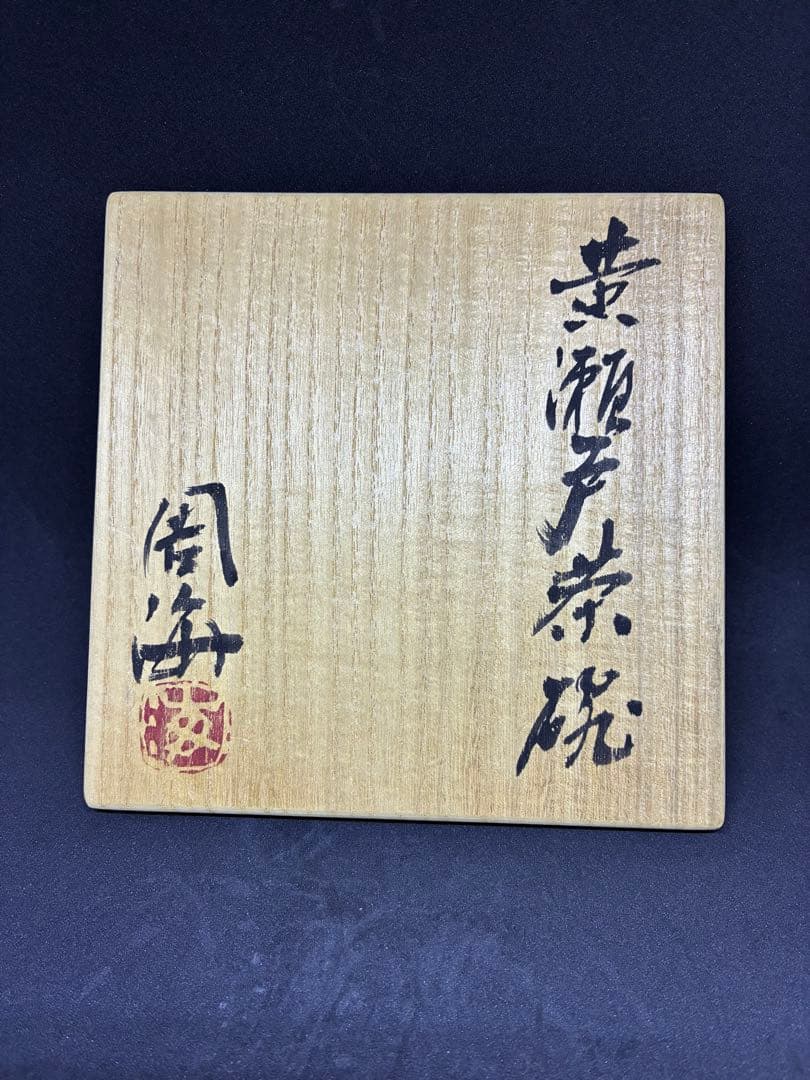 黄瀬戸茶碗
周海